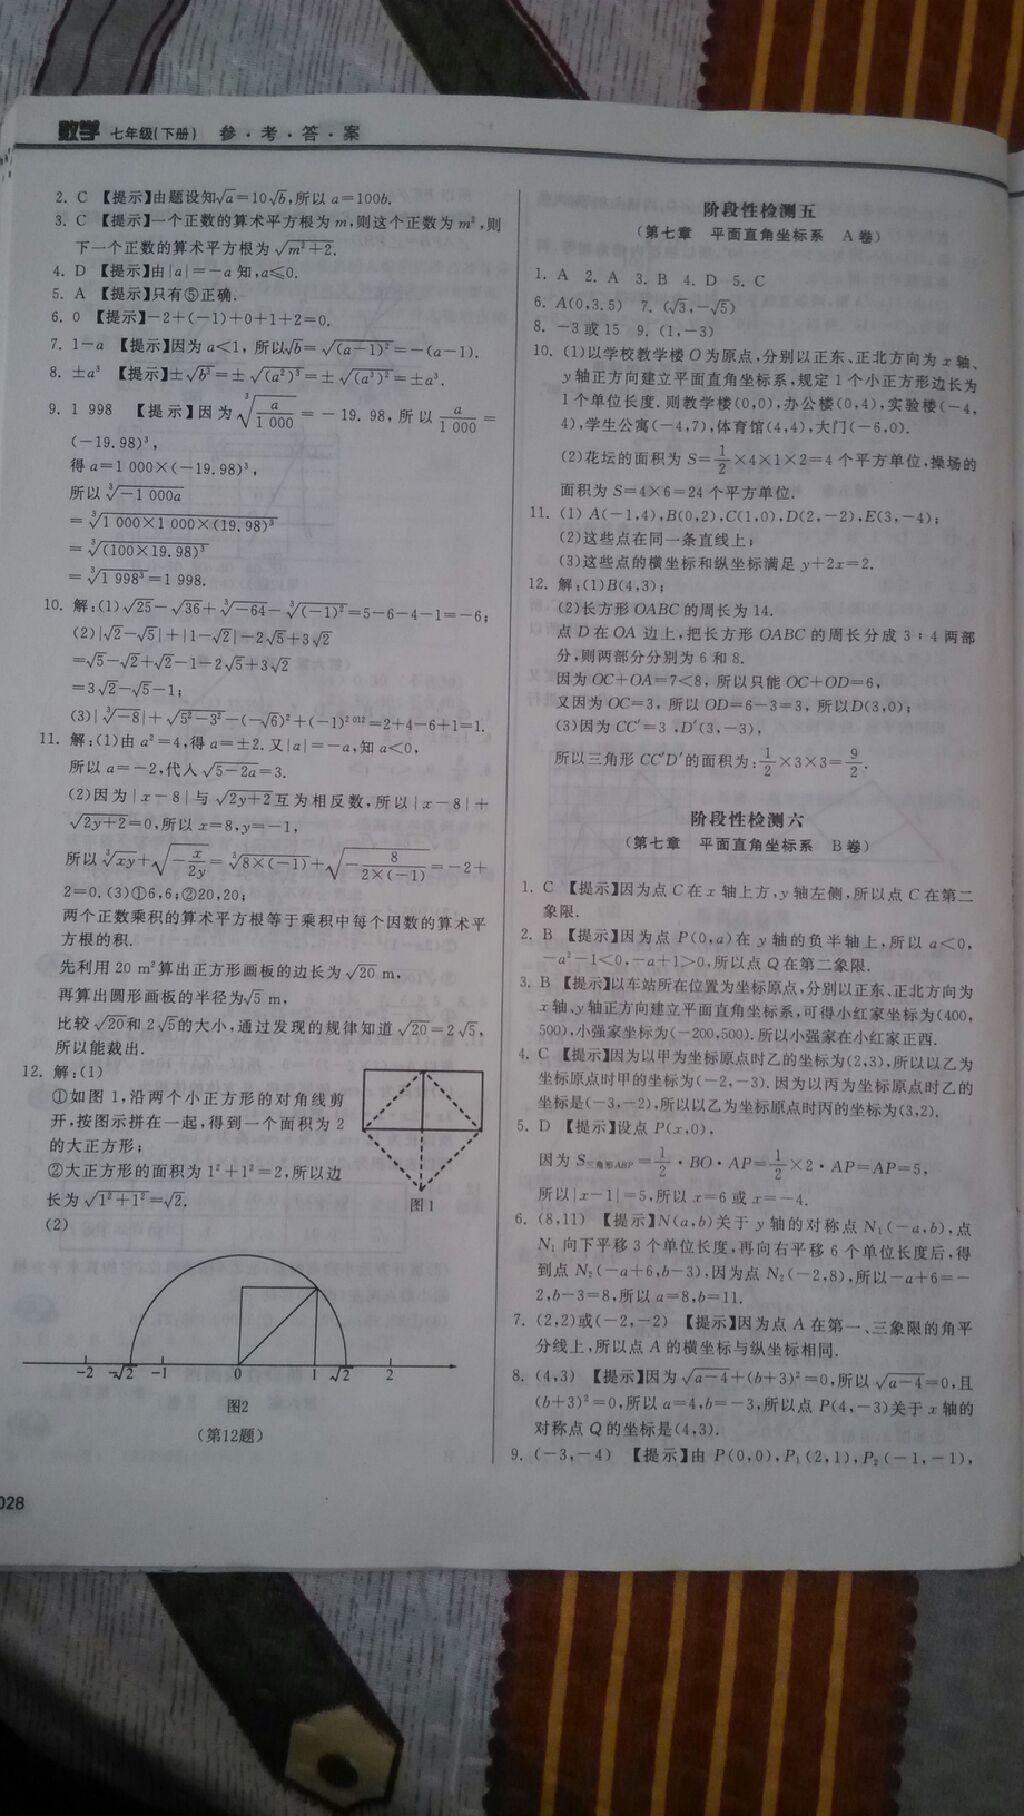 数学 七年级(下册) 参·考·答·案
2. C 【提示】由题设知√a=10√b,所以 a=100b.
3. C 【提示】一个正数的算术平方根为 m,则这个正数为 m²,则
下一个正数的算术平方根为 √(m²+2).
4. D 【提示】由|a|=-a 知,a≤0.
5. A 【提示】只有⑤正确.
6. 0 【提示】-2+(-1)+0+1+2=0.
7. 1-a 【提示】因为 a<1, 所以√b=√((a-1)²)=-(a-1).
8. ±a³ 【提示】±√(b³)=±√((a²)³)=±√((a³)²)=±a³.
9. 1 998 【提示】因为 ∛(a/1 000) = -19.98,所以 a/1 000 =
(-19.98)³,
得 a=1 000×(-19.98)³,
所以 ∛(-1 000a)
=∛(1 000×1 000×(19.98)³)
=∛((100×19.98)³)
=∛(1 998³)=1 998.
10. 解:(1)√25-√36+∛(-64)-∛((-1)²)=5-6-4-1=-6;
(2)|√2-√5|+|1-√2|-2√5+3√2
=√5-√2+√2-1-2√5+3√2
=3√2-√5-1;
(3)|∛(-8)|+√(5²-3²)-(-√6)²+(-1)²⁰¹²=2+4-6+1=1.
11. 解:(1)由 a²=4,得 a=±2.又|a|=-a,知 a<0,
所以 a=-2,代入 √(5-2a)=3.
(2)因为|x-8|与 √(2y+2)互为相反数,所以|x-8|+
√(2y+2)=0,所以 x=8,y=-1,
所以∛(xy)+√(-x/2y)=∛(8×(-1))+√(-8/(2×(-1)))=-2+
2=0.(3)①6,6;②20,20;
两个正数乘积的算术平方根等于乘积中每个因数的算术平
方根的积.
先利用 20 m²算出正方形画板的边长为 √20 m,
再算出圆形画板的半径为√5 m,
比较 √20和 2√5的大小,通过发现的规律知道 √20=2√5,
所以能裁出.
12. 解:(1)
①如图 1,沿两个小正方形的对角线剪
开,按图示拼在一起,得到一个面积为 2
的大正方形;
②大正方形的面积为 1²+1²=2,所以边
长为 √(1²+1²)=√2.
图1
(2)
-2 -√2 -1 0 1 √2 2
图2
(第12题)
028
阶段性检测五
(第七章 平面直角坐标系 A卷)
1. A 2. A 3. B 4. D 5. C
6. A(0,3.5) 7. (√3,-√5)
8. -3或15 9. (1,-3)
10. (1)以学校教学楼 O 为原点,分别以正东、正北方向为 x 轴、
y轴正方向建立平面直角坐标系,规定 1 个小正方形边长为
1个单位长度.则教学楼(0,0),办公楼(0,4),实验楼(-4,
4),学生公寓(-4,7),体育馆(4,4),大门(-6,0).
(2)花坛的面积为 S=1/2×4×1×2=4 个平方单位,操场的
面积为 S=4×6=24 个平方单位.
11. (1) A(-1,4),B(0,2),C(1,0),D(2,-2),E(3,-4);
(2)这些点在同一条直线上;
(3)这些点的横坐标和纵坐标满足 y+2x=2.
12. 解:(1)B(4,3);
(2)长方形 OABC 的周长为 14.
点 D 在 OA 边上,把长方形 OABC 的周长分成 3∶4 两部
分,则两部分分别为 6 和 8.
因为 OC+OA=7<8, 所以只能 OC+OD=6,
又因为 OC=3, 所以 OD=6-3=3, 所以D(3,0);
(3)因为 CC′=3 ,D′(3,-3),
所以三角形 CC′D′的面积为:1/2×3×3=9/2.
阶段性检测六
(第七章 平面直角坐标系 B卷)
1. C 【提示】因为点 C 在 x 轴上方,y 轴左侧,所以点 C 在第二
象限.
2. B 【提示】因为点 P(0,a)在 y 轴的负半轴上,所以 a<0,
-a²-1<0,-a+1>0,所以点 Q 在第二象限.
3. B 【提示】以车站所在位置为坐标原点,分别以正东、正北方向为
x轴、y轴正方向建立平面直角坐标系,可得小红家坐标为(400,
500),小强家坐标为(-200,500).所以小强家在小红家正西.
4. C 【提示】因为以甲为坐标原点时乙的坐标为(2,3),所以以乙为
坐标原点时甲的坐标为(-2,-3).因为以丙为坐标原点时乙的
坐标是(-3,-2),所以以乙为坐标原点时丙的坐标为(3,2).
5. D 【提示】设点 P(x,0),
因为 S三角形ABP=1/2·BO·AP=1/2×2·AP=AP=5,
所以|x-1|=5,所以 x=6 或 x=-4.
6. (8,11) 【提示】N(a,b)关于 y 轴的对称点 N₁(-a,b),点
N₁ 向下平移 3 个单位长度,再向右平移 6 个单位长度后,得
到点 N₂(-a+6,b-3),因为点 N₂(-2,8),所以-a+6=-
2,b-3=8,所以 a=8,b=11.
7. (2,2)或(-2,-2) 【提示】因为点 A 在第一、三象限的角平
分线上,所以点 A 的横坐标与纵坐标相同.
8. (4,3) 【提示】因为√(a-4)+(b+3)²=0,所以 √(a-4)=0,且
(b+3)²=0,所以 a=4,b=-3,所以点 P(4,-3)关于 x 轴的
对称点 Q 的坐标是(4,3).
9. (-3,-4) 【提示】由 P(0,0),P₁(2,1),P₂(-1,-1),